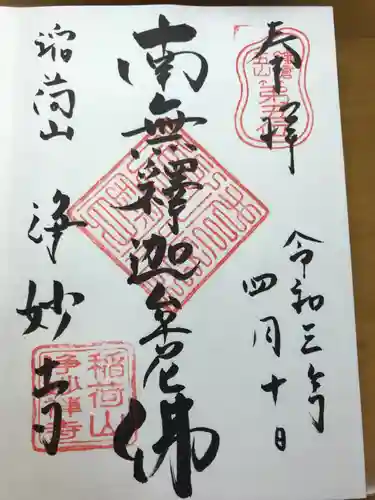 奉拝
鎌倉
五山
第五位
令和三年
四月十日
南無釋迦牟尼佛
稲荷山
浄妙寺
稲荷山
浄妙禅寺